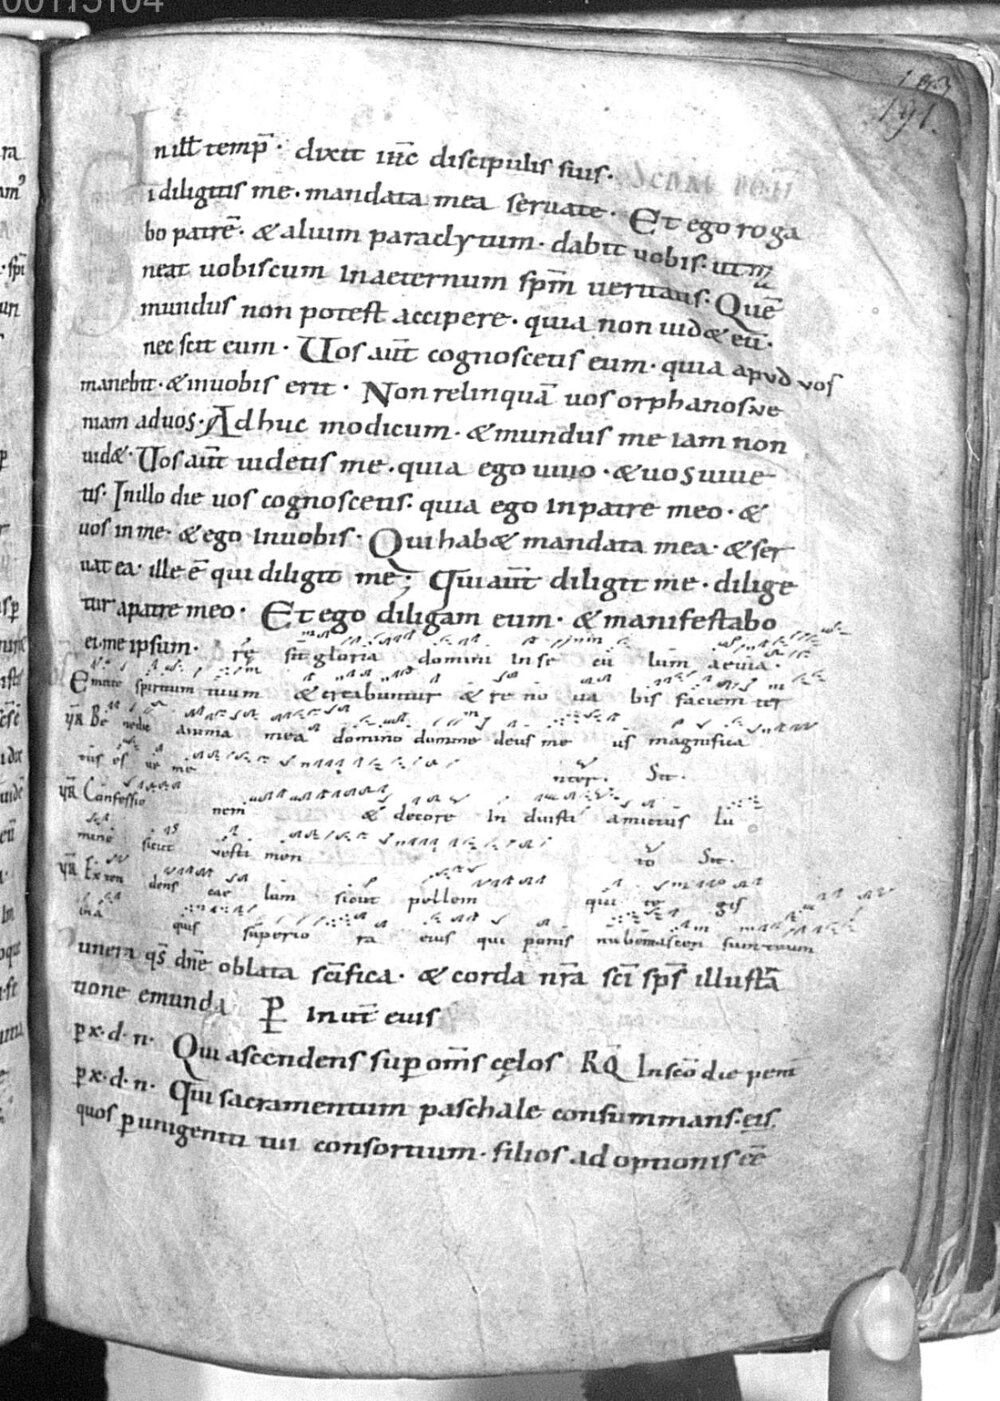 00115104
191.
In ill̄ temp̄. dixit ih̄c discipulis suis.
Si diligitis me. mandata mea seruate. Et ego roga
bo patrē. & alium paraclytum. dabit uobis. ut m
neat uobiscum in aeternum sp̄m ueritatis. Quē
mundus non potest accipere. quia non uid& eū.
nec scit eum. Uos aūt cognoscetis eum. quia apud vos
manebit. & in uobis erit. Non relinquā uos orphanos ve
niam ad uos. Adhuc modicum. & mundus me iam non
uid&. Uos aūt uidetis me. quia ego uiuo. & uos uiue
tis. In illo die uos cognoscetis. quia ego in patre meo. &
uos in me. & ego in uobis. Qui hab& mandata mea. & ser
uat ea. ille ē qui diligit me; Qui aūt diligit me. dilige
tur a patre meo. Et ego diligam eum. & manifestabo
ei me ipsum. sit gloria domini in se cu lum aeuia.
Emitte spiritum tuum & creabuntur & re no ua bis faciem ter
Be nedic anima mea domino domine deus me us magnifica
tus es ue me nter. Sit.
Confessio nem & decore in duisti amictus lu
mine sicut uesti men to Sit.
Ex ten dens cae lum sicut pellem qui te gis
quis superio ra eius qui ponis nubem ascen sum tuum
unera qs̄ dn̄e oblata sc̄ifica. & corda nr̄a sc̄i sp̄s illustrā
tione emunda P̄ Inuit̄ eius
p x. d. n. Qui ascendens sup om̄s cęlos RQ̄ In scō die pent̄
p x. d. n. Qui sacramentum paschale consummans. eis.
quos p unigeniti tui consortium. filios adoptionis eē